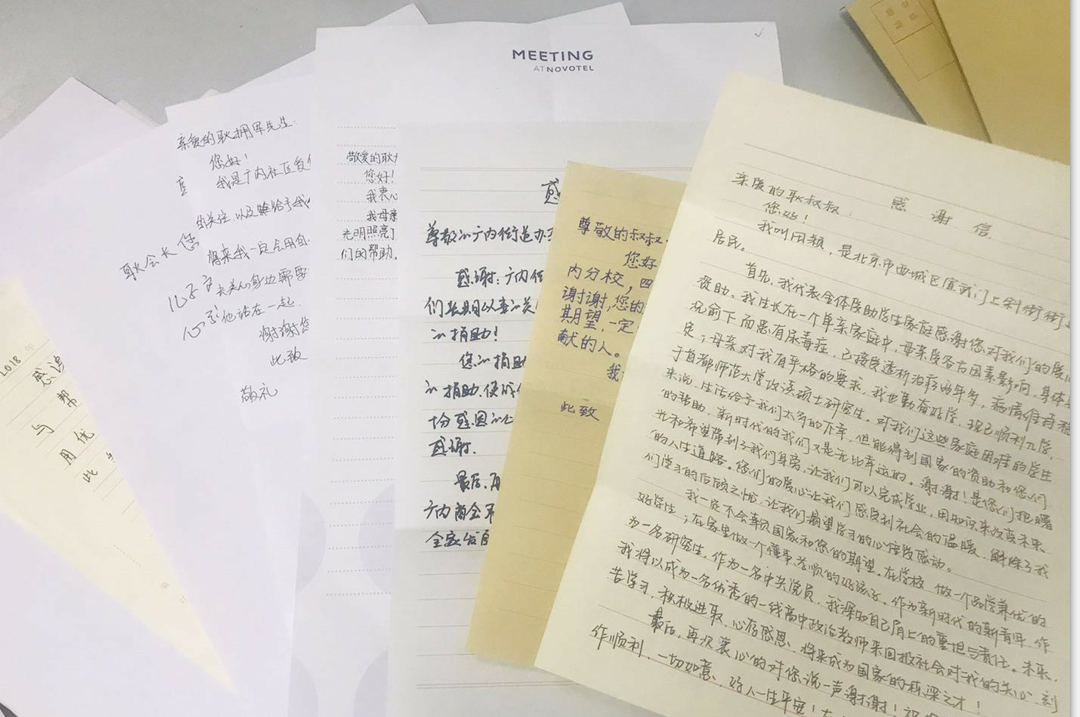 2018
感
帮
与
用优
此
亲爱的耿拥军先生:
您好!
我是广内社区
的关注,以及赠给予我
将来我一定会用自
耿会长您
谢谢您
此致
敬礼
MEETING
AT NOVOTEL
敬爱的耿
您好!
我衷心
我母亲
光明照亮了
们的帮助。
感
尊敬的广内街道办
感谢:广内街
们长期以来的关
的捐助!
您的捐助
的捐助,使
感谢。
最后,再
广内商会
尊敬的叔叔
您好
内分校,四
谢谢,您的
期望,一定
献的人。
我
此致
感谢信
亲爱的耿叔叔:
您好!
我叫田颖,是北京市西城区宣武门上斜街街
居民。
首先,我代表全体受助学生家庭感谢您对我们的爱心
资助。我生长在一个单亲家庭中,母亲受各方因素影响,身体
况俞下而患有尿毒症,已接受透析治疗两年多,病情
母亲对我有严格的要求,我也勤奋好学,现已顺利
于首都师范大学攻读硕士研究生。对我们这些家庭困难的学生
来说,生活给予我们太多的不幸,但能得到国家的资助和您们
的帮助,新时代的我们又是无比幸运的。谢谢!是您们把曙
光和希望带到了我们身旁,让我们可以完成学业,用知识来改变未来
的人生道路。您们的爱心让我们感受到社会的温暖,解除了我
们学习的后顾之忧,让我们渴望学习的心倍受感动。
我一定不会辜负国家和您的期望。在学校,做一个品学兼优的
好学生;在家里做一个懂事孝顺的好孩子。作为新时代的新青年,作
为一名研究生,作为一名中共党员,我深知自己肩上的重担与责任。未来,
我将以成为一名优秀的一线高中政治教师来回报社会对我的关心,刻
苦学习,积极进取,心存感恩,将来成为国家的栋梁之才!
最后,再次衷心的对您说一声谢谢!祝
作顺利,一切如意,好人一生平安!